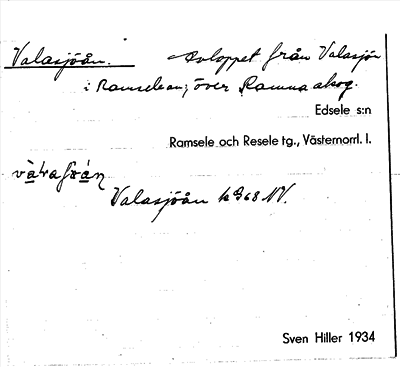 Valasjöån. Avloppet från Valasjön
i Ramsele sn; över Ramna skog.
Edsele s:n
Ramsele och Resele tg., Västernorrl. l.
Valasjöån k 368 NV.
Sven Hiller 1934